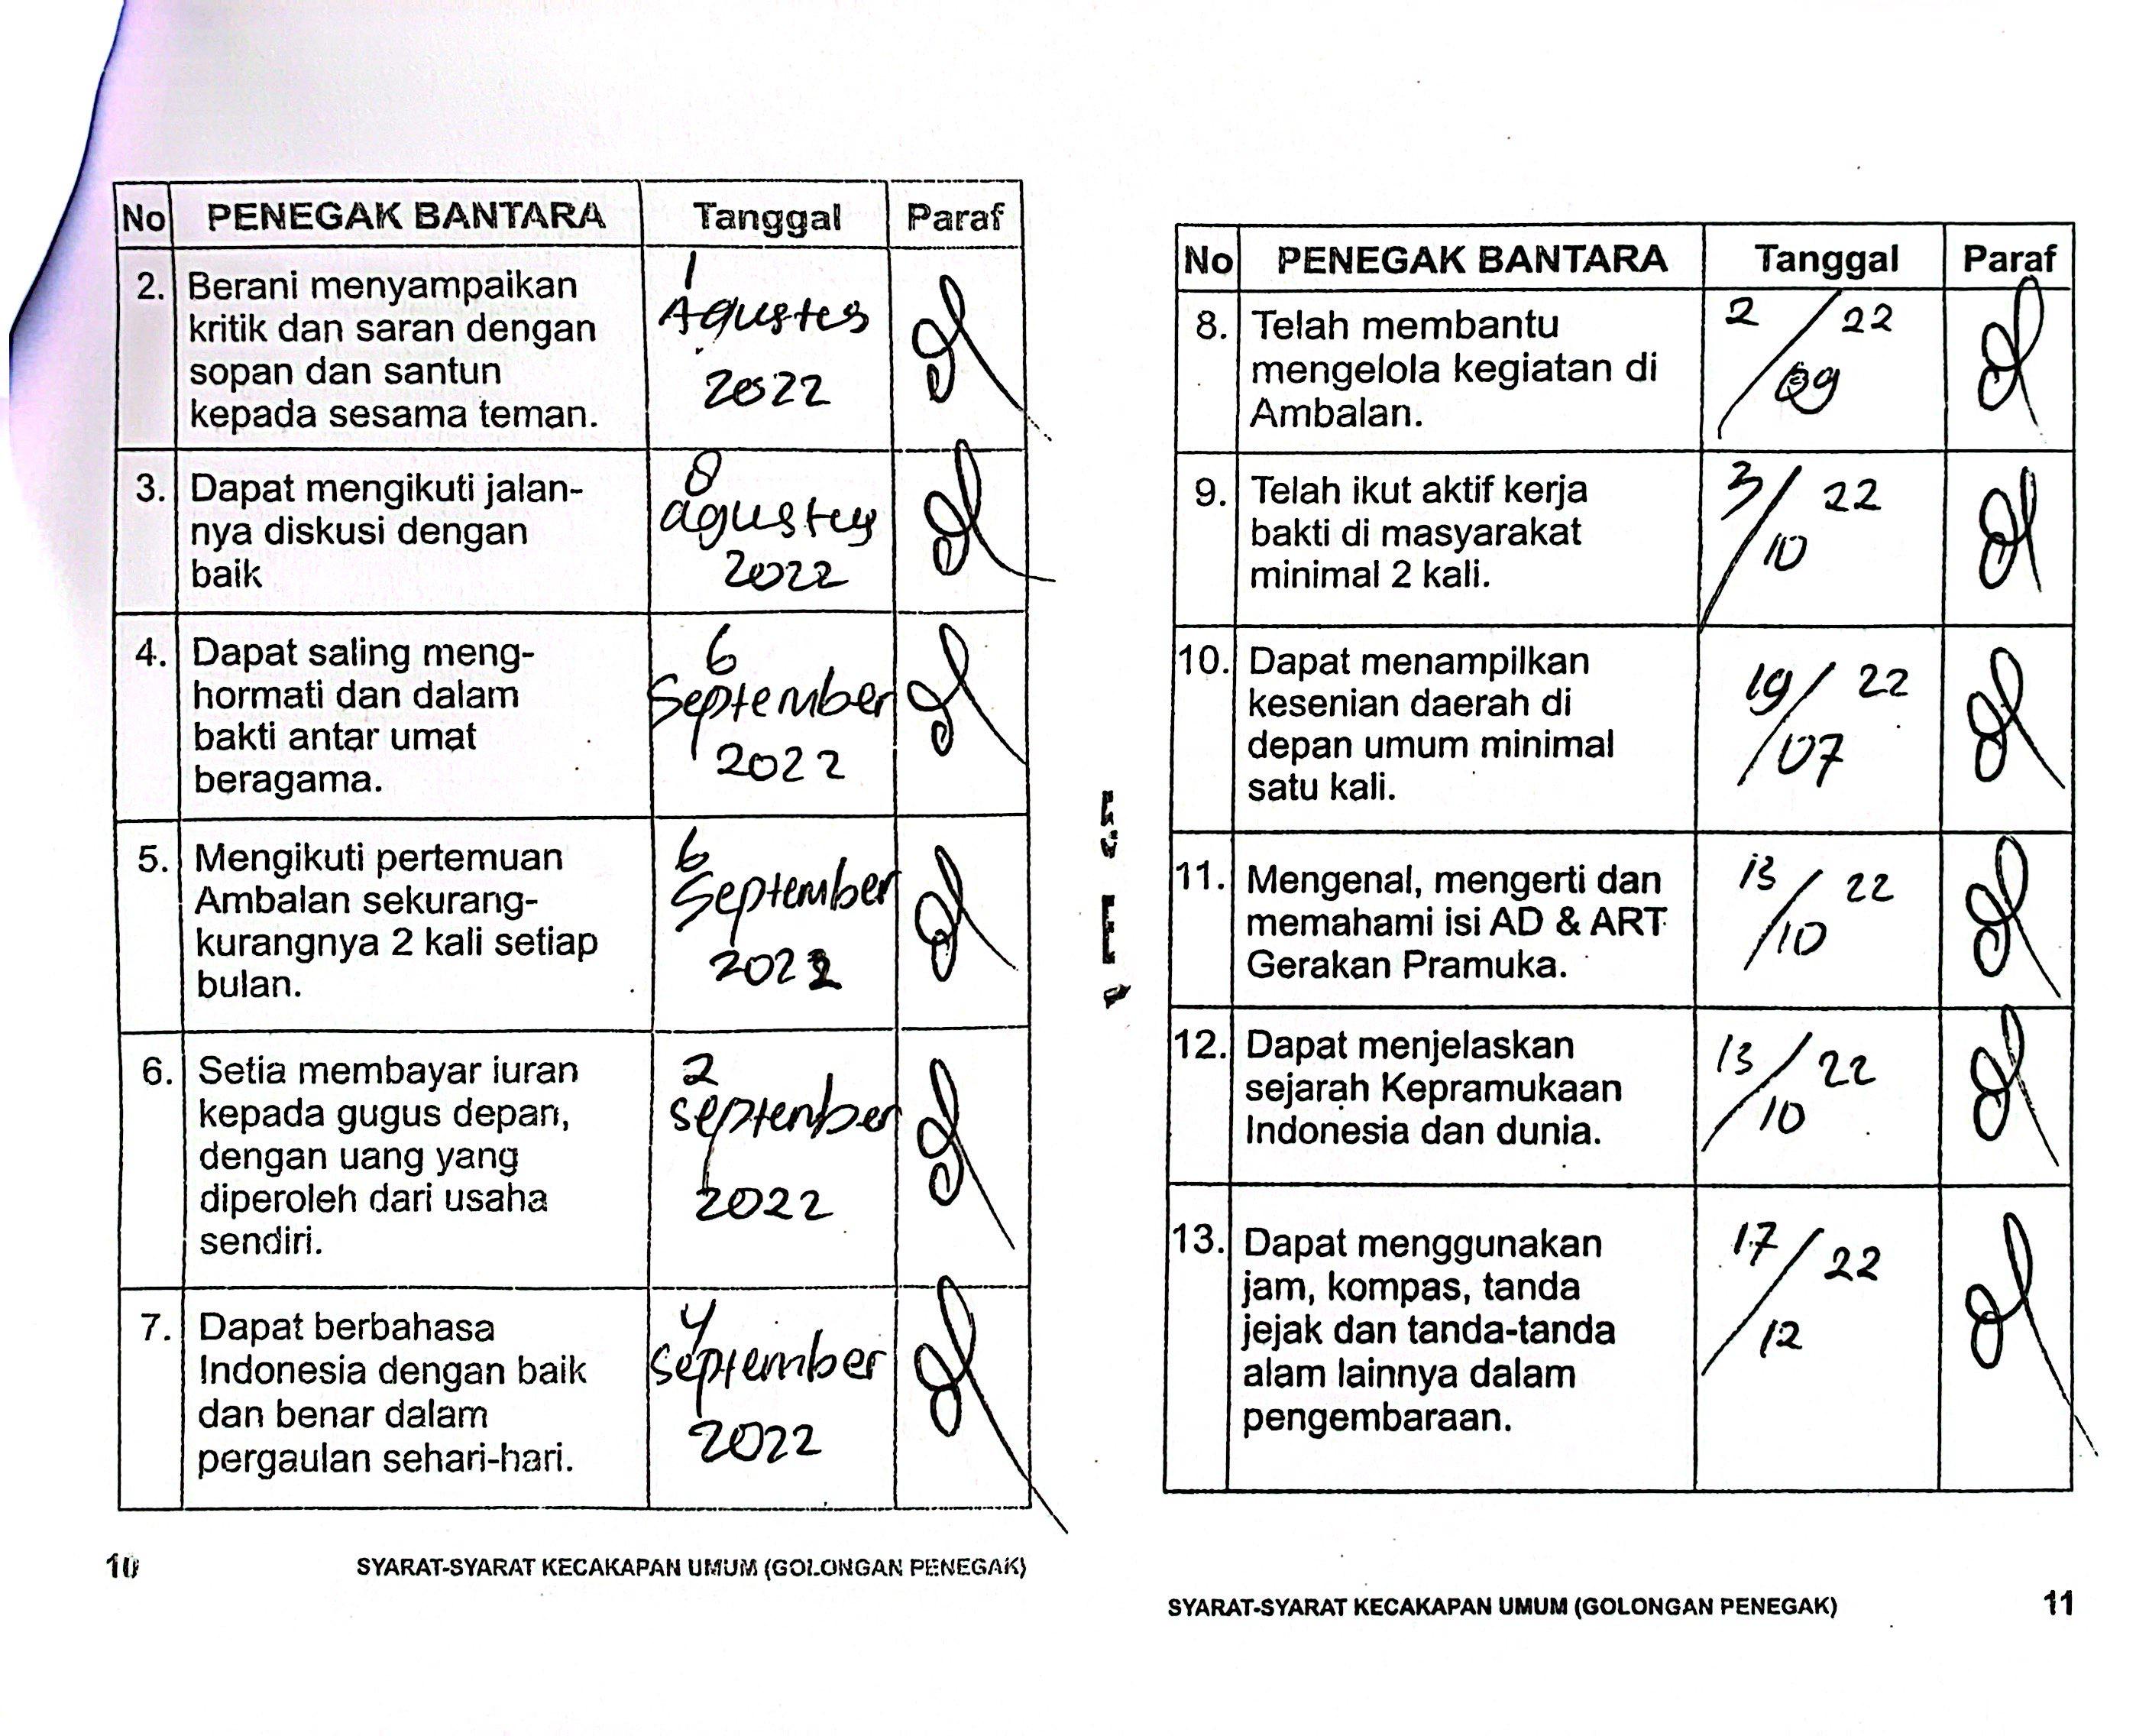 No PENEGAK BANTARA Tanggal Paraf
2. Berani menyampaikan
kritik dan saran dengan
sopan dan santun
kepada sesama teman.
1
Agustus
2022
3. Dapat mengikuti jalan-
nya diskusi dengan
baik
8
agustus
2022
4. Dapat saling meng-
hormati dan dalam
bakti antar umat
beragama.
6
September
2022
5. Mengikuti pertemuan
Ambalan sekurang-
kurangnya 2 kali setiap
bulan.
6
September
2022
6. Setia membayar iuran
kepada gugus depan,
dengan uang yang
diperoleh dari usaha
sendiri.
2
september
2022
7. Dapat berbahasa
Indonesia dengan baik
dan benar dalam
pergaulan sehari-hari.
4
September
2022
10 SYARAT-SYARAT KECAKAPAN UMUM (GOLONGAN PENEGAK)
No PENEGAK BANTARA Tanggal Paraf
8. Telah membantu
mengelola kegiatan di
Ambalan.
2 / 22
09
9. Telah ikut aktif kerja
bakti di masyarakat
minimal 2 kali.
3 / 22
10
10. Dapat menampilkan
kesenian daerah di
depan umum minimal
satu kali.
19 / 22
07
11. Mengenal, mengerti dan
memahami isi AD & ART
Gerakan Pramuka.
13 / 22
10
12. Dapat menjelaskan
sejarah Kepramukaan
Indonesia dan dunia.
13 / 22
10
13. Dapat menggunakan
jam, kompas, tanda
jejak dan tanda-tanda
alam lainnya dalam
pengembaraan.
17 / 22
12
SYARAT-SYARAT KECAKAPAN UMUM (GOLONGAN PENEGAK) 11